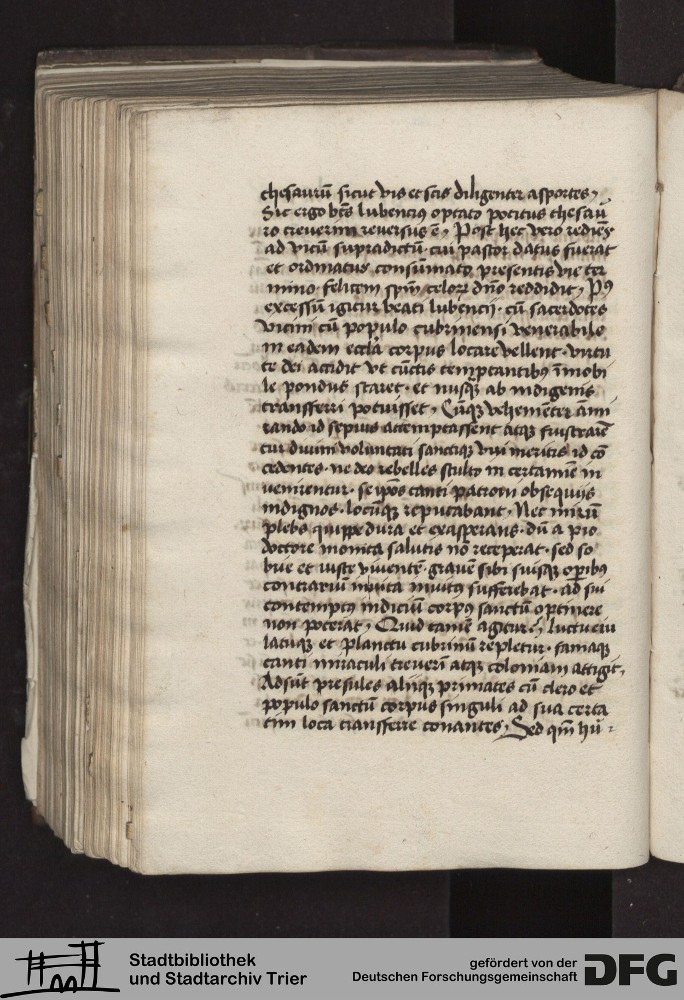 thesaurū sicut vis et scis diligenter asportes,
Sic ergo btūs lubencius optato potitus thesau
ro treverim reversus ē, Post hec vero rediēs
ad vicū supradictū · cui pastor datus fuerat
et ordinatus consūmato presentis vie ter
mino · felicem spm̄ celorꝝ dn̄o reddidit, Pꝰ
excessū igitur beati lubencii · cū sacerdotes
vicini cū populo cubrinensi venerabile
in eadem eccla corpus locare vellent · virtu
te dei accidit ut cūctis temptantibꝰ īmobi
le pondus staret · et nusqꝫ ab indigenis
transferri potuisset, Cūqꝫ vehemēter āmi
rando id sepius attemptassent atqꝫ frustrarē
tur divini volūtati sanctiqꝫ viri meritis id cō
cedentes · ne deo rebelles stulto in certamīe in
venirentur · se ipōs tanti patroni obsequiis
indignos · locūqꝫ reputabant · Nec mirū
plebs quippe dura et exasperans · dū a pio
doctore monita salutis nō receperat · sed so
brie et iuste viventē · gravē sibi suisqꝫ operibꝰ
contrariū invita invitū sufferebat · ad sui
contemptꝰ indiciū corpꝰ sanctū optinere
non poterat, Quid tamē agitur, luctu eiu
latuqꝫ et planctu cubrinū repletur · famaqꝫ
tanti miraculi treverī atqꝫ coloniam attigit,
Adsūt presules aliiqꝫ primates cū clero et
populo sanctū corpus singuli ad sua certa
tim loca transferre conantes, Sed qm̄ hū
Stadtbibliothek
und Stadtarchiv Trier
gefördert von der
Deutschen Forschungsgemeinschaft
DFG